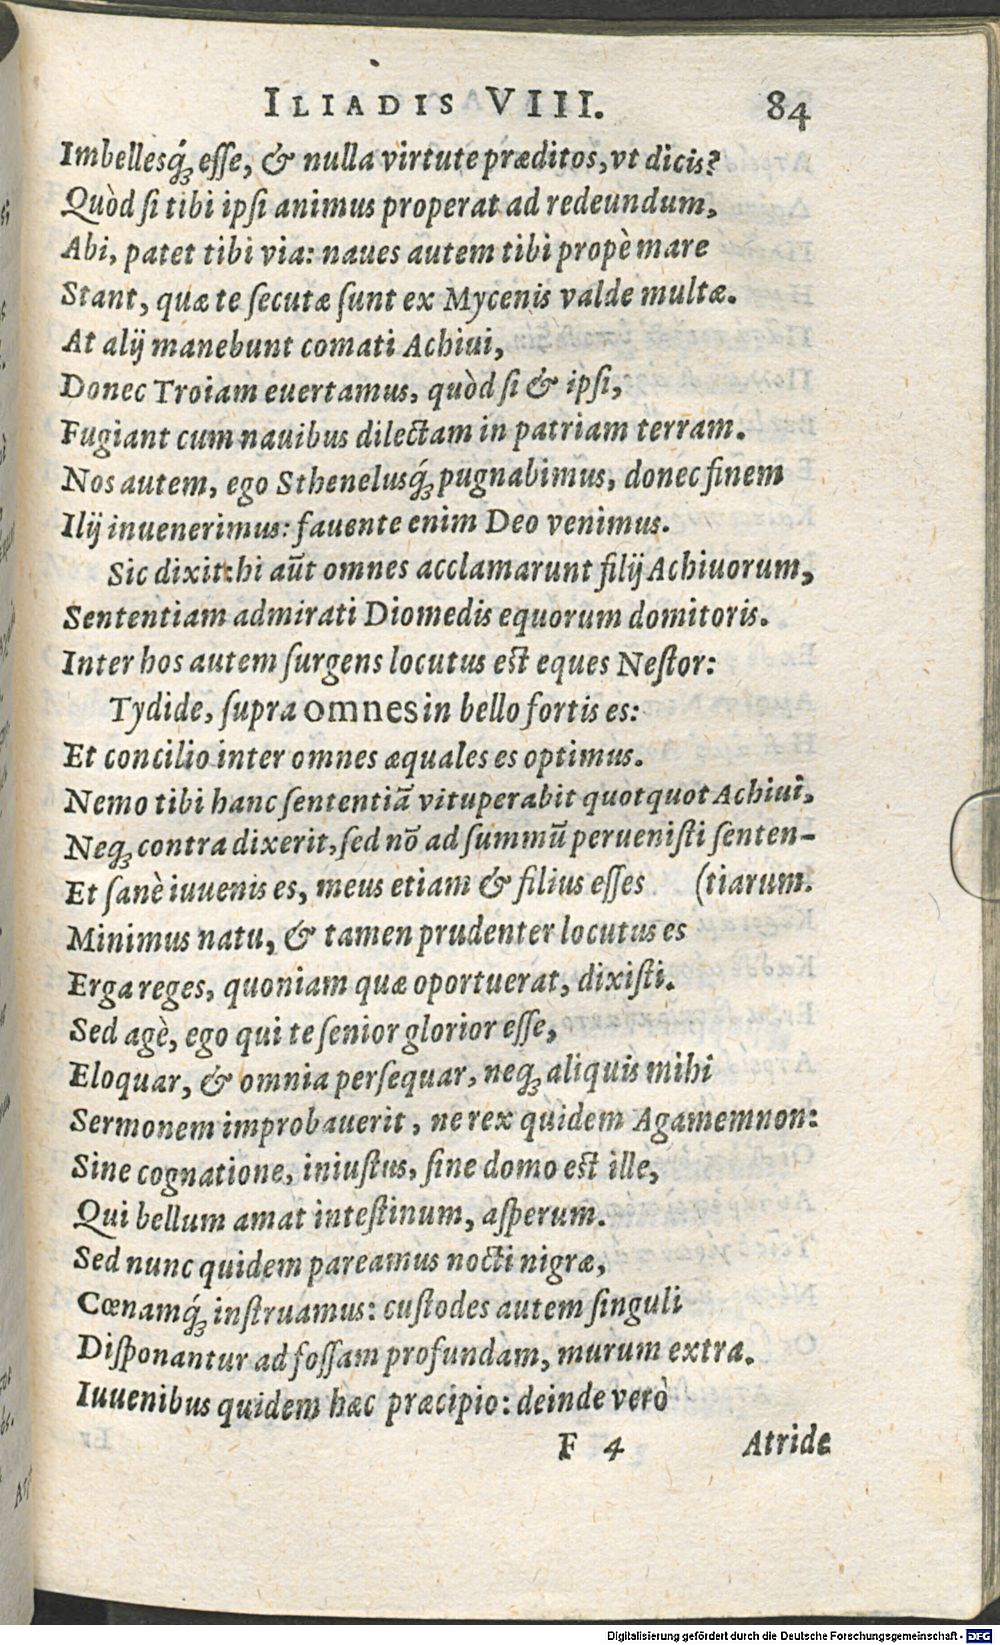 ILIADIS VIII. 84
Imbellesq́ꝫ esse, & nulla virtute præditos, vt dicis?
Quòd si tibi ipsi animus properat ad redeundum,
Abi, patet tibi via: naues autem tibi propè mare
Stant, quæ te secutæ sunt ex Mycenis valde multæ.
At alij manebunt comati Achiui,
Donec Troiam euertamus, quòd si & ipsi,
Fugiant cum nauibus dilectam in patriam terram.
Nos autem, ego Sthenelusq́ꝫ pugnabimus, donec finem
Ilij inuenerimus: fauente enim Deo venimus.
Sic dixit: hi aūt omnes acclamarunt filij Achiuorum,
Sententiam admirati Diomedis equorum domitoris.
Inter hos autem surgens locutus est eques Nestor:
Tydide, supra omnes in bello fortis es:
Et concilio inter omnes æquales es optimus.
Nemo tibi hanc sententiā vituperabit quotquot Achiui,
Neqꝫ contra dixerit, sed nō ad summū peruenisti senten-
Et sanè iuuenis es, meus etiam & filius esses (tiarum.
Minimus natu, & tamen prudenter locutus es
Erga reges, quoniam quæ oportuerat, dixisti.
Sed agè, ego qui te senior glorior esse,
Eloquar, & omnia persequar, neqꝫ aliquis mihi
Sermonem improbauerit, ne rex quidem Agamemnon:
Sine cognatione, iniustus, sine domo est ille,
Qui bellum amat intestinum, asperum.
Sed nunc quidem pareamus nocti nigræ,
Cœnamq́ꝫ instruamus: custodes autem singuli
Disponantur ad fossam profundam, murum extra.
Iuuenibus quidem hæc præcipio: deinde verò
F 4 Atride
Digitalisierung gefördert durch die Deutsche Forschungsgemeinschaft - DFG